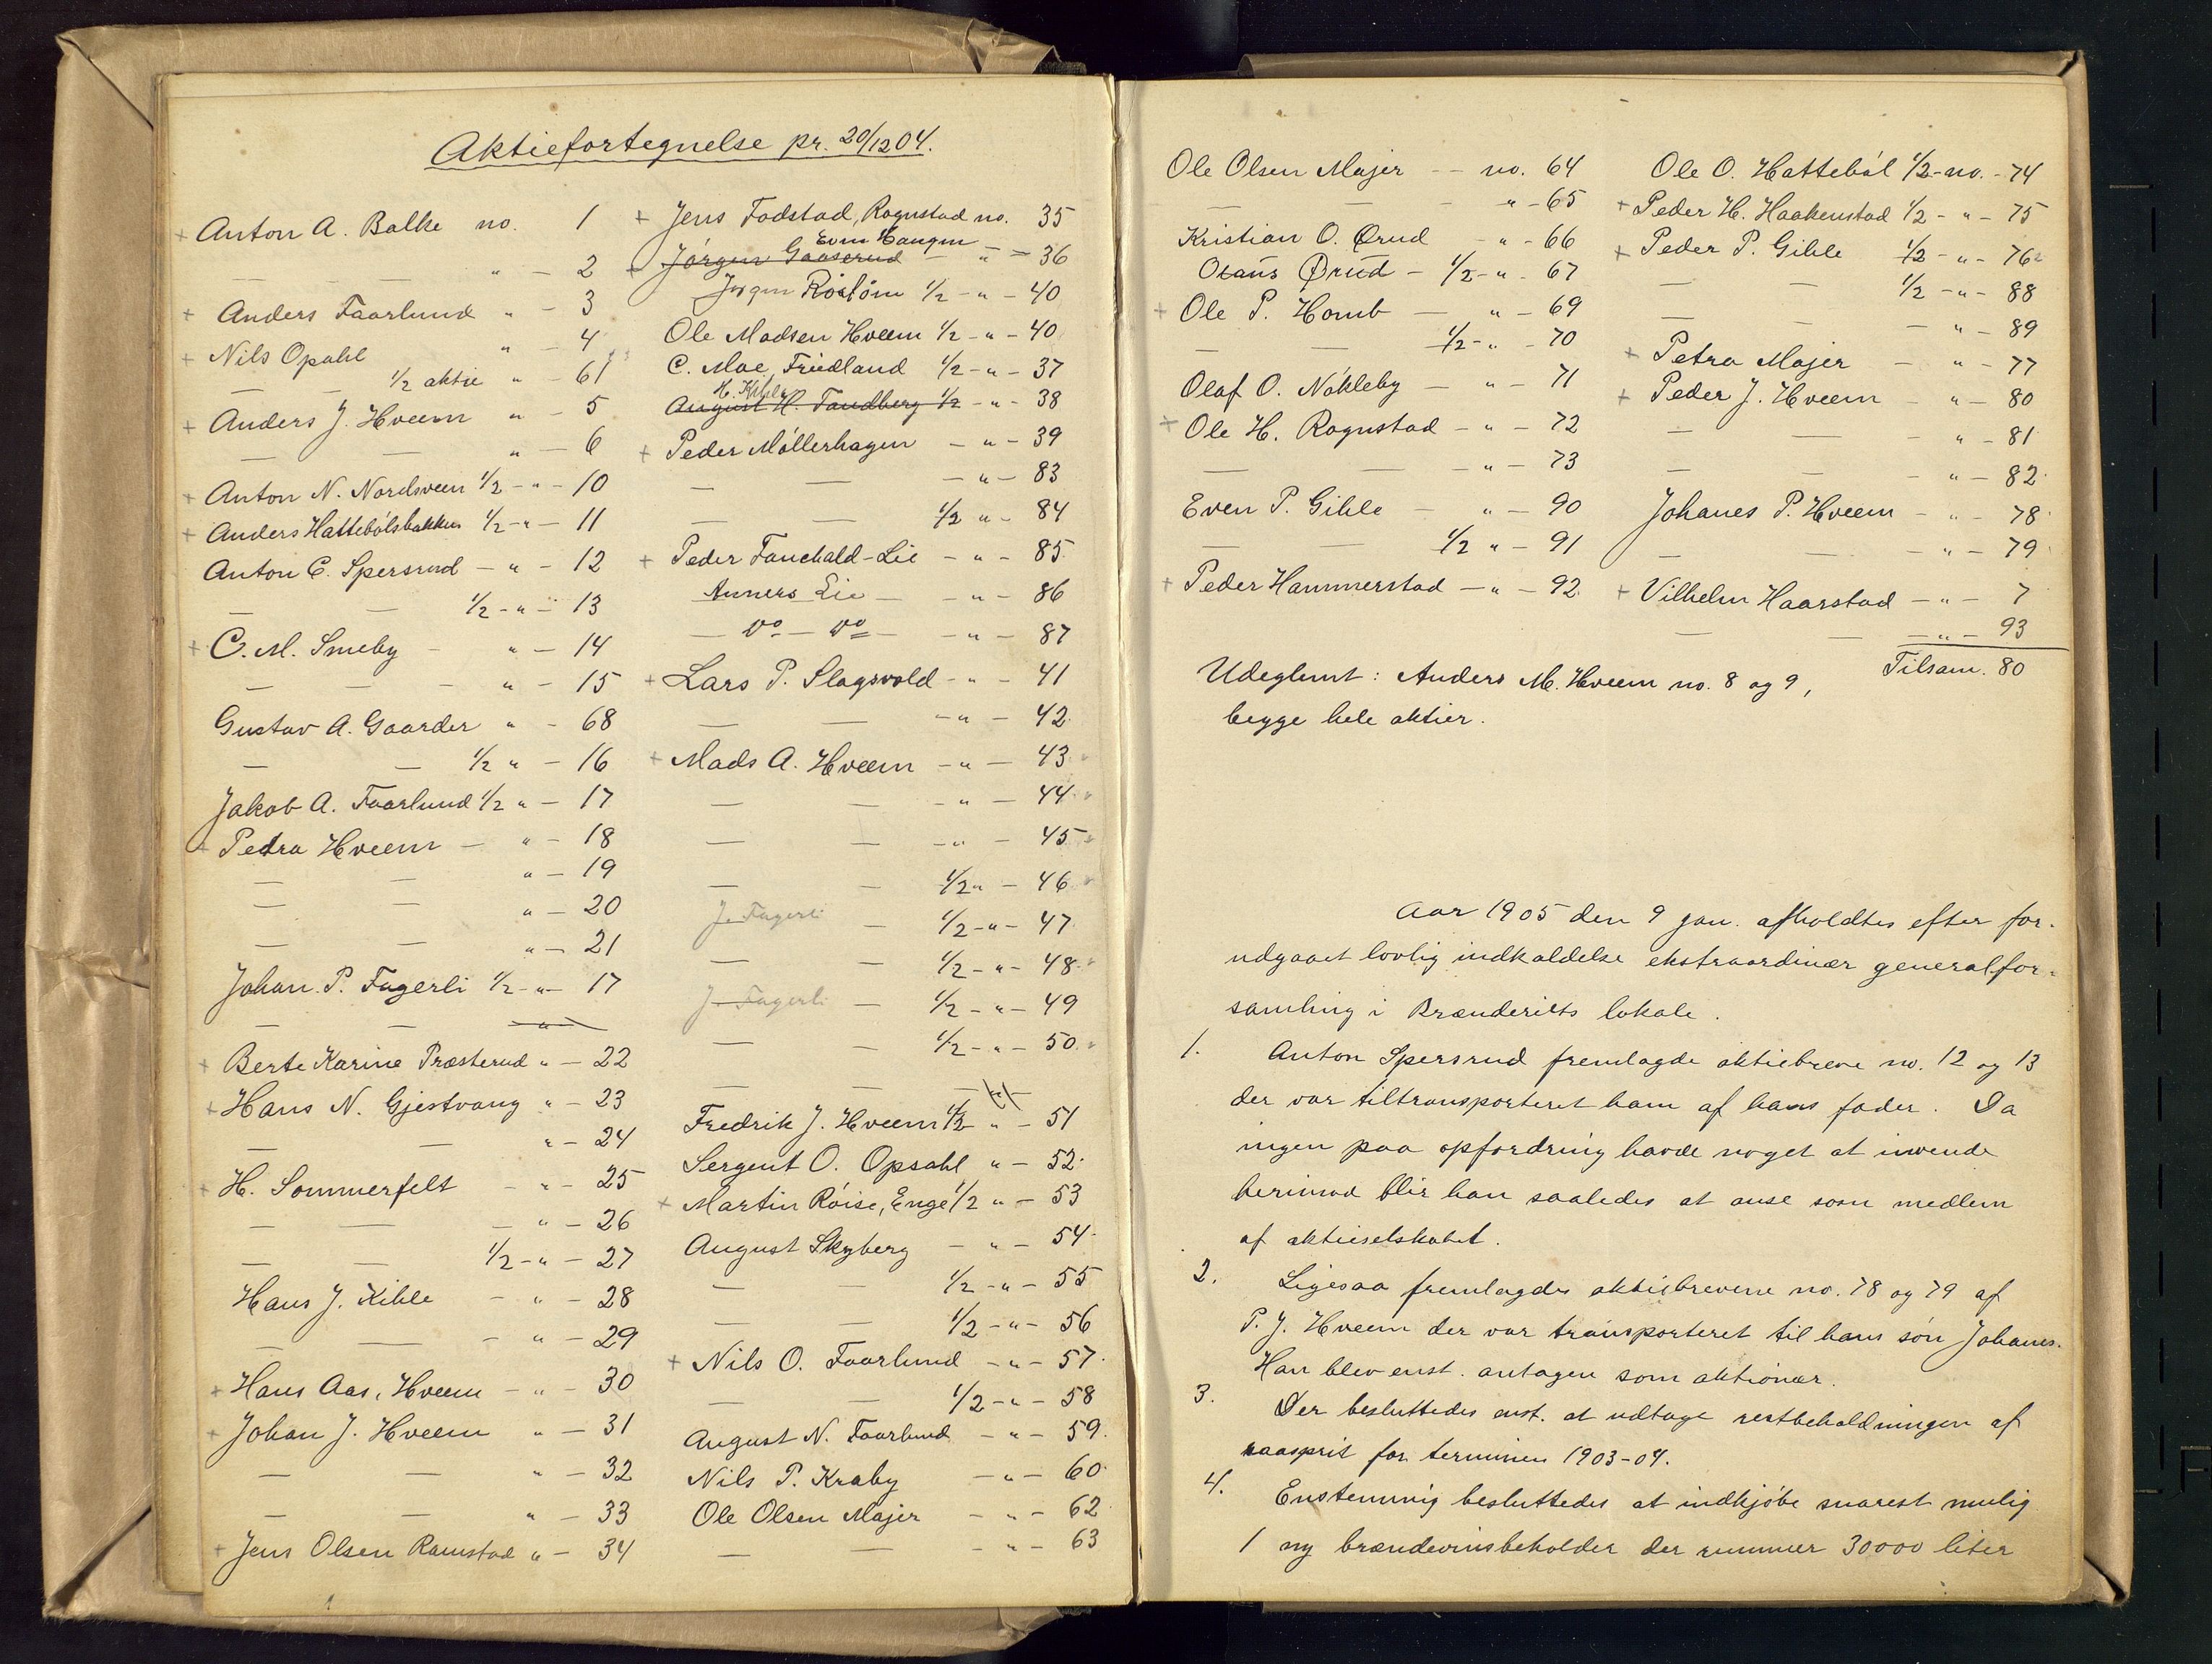 Aktiefortegnelse pr. 20/12 04.
+ Anton A. Balke no. 1
— — " — 2
+ Anders Faarlund " — 3
+ Nils Opahl " — 4
— — 1/2 aktie " — 61
+ Anders J. Hveem " — 5
— — " — 6
+ Anton N. Nordsveen 1/2 - " — 10
+ Anders Hattebölsbakken 1/2 - " — 11
Anton C. Spersrud — " — 12
— — 1/2 - " — 13
+ C. M. Smeby — " — 14
— — — " — 15
Gustav A. Gaarder " — 68
— — 1/2 " — 16
Jakob A. Faarlund 1/2 " — 17
+ Petra Hveem — " — 18
— — " — 19
— — " — 20
— — " — 21
Johan P. Fagerli 1/2 - " — 17
— — "
+ Berte Karine Præsterud " — 22
+ Hans N. Gjestvang " — 23
— — " — 24
+ H. Sommerfelt — " — 25
— — — " — 26
— — 1/2 - " — 27
Hans J. Kihle — " — 28
— — — " — 29
+ Hans Aas, Hveem — " — 30
+ Johan J. Hveem " — 31
— — " — 32
— — " — 33
+ Jens Olsen Ramstad " — 34
+ Jens Fodstad, Rognstad no. 35
Even Haugen
+ Jörgen Gaaserud — " — 36
Jörgen Röstöm 1/2 - " — 40
Ole Madsen Hveem 1/2 - " — 40
C. Moe, Friedland 1/2 - " — 37
H. Kihle
August H. Tandberg 1/2 - " — 38
+ Peder Möllerhagen — " — 39
— — — " — 83
— — 1/2 " — 84
+ Peder Fauchald-Lie — " — 85
Anners Lie — — " — 86
— Do — Do — — " — 87
+ Lars P. Slagsvold — " — 41
— — — " — 42
+ Mads A. Hveem — " — 43
— — — " — 44
— — — " — 45
— — 1/2 " — 46
J. Fagerli — 1/2 - " — 47
— — 1/2 - " — 48
J. Fagerli — 1/2 - " — 49
— — 1/2 - " — 50
— — —
Fredrik J. Hveem 1/2 " — 51
Sergent O. Opsahl " — 52
+ Martin Röise, Enge 1/2 " — 53
August Skyberg — " — 54
— — 1/2 - " — 55
— — 1/2 - " — 56
+ Nils O. Faarlund — " — 57
— — 1/2 - " — 58
August N. Faarlund — " — 59
Nils P. Kraby — " — 60
Ole Olsen Majer — " — 62
— — — " — 63
Ole Olsen Majer — no. 64
— — " — 65
Kristian O. Ørud — " — 66
Otans Ørud — 1/2 - " — 67
+ Ole P. Homb — " — 69
— — 1/2 - " — 70
Olaf O. Nökleby — " — 71
+ Ole H. Rognstad — " — 72
— — — " — 73
Even P. Gihle — " — 90
— — 1/2 " — 91
+ Peder Hammerstad — " — 92
Ole O. Hatteböl 1/2 - no. — 74
+ Peder H. Haakenstad 1/2 - " — 75
+ Peder P. Gihle 1/2 - " — 76
— — 1/2 - " — 88
— — — " — 89
+ Petra Majer — " — 77
+ Peder J. Hveem — " — 80
— — — " — 81
— — — " — 82
Johanes P. Hveem — " — 78
— — — " — 79
+ Vilhelm Haarstad — " — 7
— — — " — 93
Tilsam. 80
Udeglemt : Anders M. Hveem no. 8 og 9,
begge hele aktier.
Aar 1905 den 9 jan. afholdtes efter for-
udgaaet lovlig indkaldelse ekstraordinær generalfor-
samling i Brænderiets lokale.
1. Anton Spersrud fremlagde aktiebreve no. 12 og 13
der var tiltransporteret ham af hans fader. Da
ingen paa opfordring havde noget at invende
herimod blir han saaledes at anse som medlem
af aktieselskabet.
2. Ligesaa fremlagdes aktiebrevene no. 78 og 79 af
P. J. Hveem der var transporteret til hans sön Johanes.
Han blev enst. antagen som aktionær.
3. Der besluttedes enst. at udtage restbeholdningen af
raasprit for terminen 1903-04.
4. Enstemmig besluttedes at indkjöbe snarest mulig
1 ny brændevinsbeholder der rummer 30000 liter